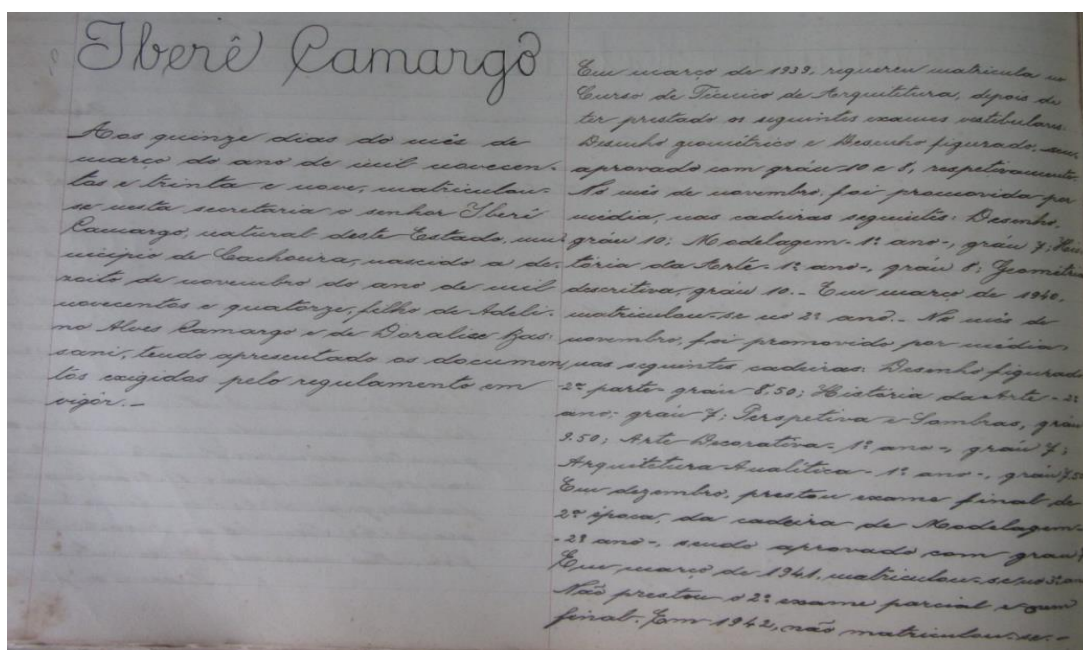 Iberê Camargo
Aos quinze dias do mês de
março do ano de mil novecen-
tos e trinta e nove, matriculou-
se nesta secretaria o senhor Iberê
Camargo, natural deste Estado, mu-
nicipio de Cachoeira, nascido a de-
zoito de novembro do ano de mil
novecentos e quatorze, filho de Adeli-
no Alves Camargo e de Doralice Bas-
sani, tendo apresentado os documen
tos exigidos pelo regulamento em
vigôr.—
Em março de 1939, requereu matricula no
Curso de Técnico de Arquitetura, depois de
ter prestado os seguintes exames vestibulares:
Desenho geométrico e Desenho figurado, sendo
aprovado com gráu 10 e 8, respetivamente.
No mês de novembro, foi promovido por
média, nas cadeiras seguintes: Desenho,
gráu 10; Modelagem - 1º ano -, gráu 7; His
tória da Arte - 1º ano -, gráu 8; Geometria
descritiva, gráu 10.- Em março de 1940,
matriculou-se no 2º ano.- No mês de
novembro, foi promovido por média,
nas seguintes cadeiras: Desenho figurado
- 2ª parte - gráu 8,50; História da Arte - 2º
ano; gráu 7; Perspetiva e Sombras, gráu
9.50; Arte Decorativa - 1º ano -, gráu 7;
Arquitetura Analítica - 1º ano -, gráu 7,50
Em dezembro, prestou exame final de
2ª época, da cadeira de Modelagem-
- 2º ano -, sendo aprovado com grau
Em março de 1941, matriculou-se no 3º ano
Não prestou o 2º exame parcial e nem
final. Em 1942, não matriculou-se.-